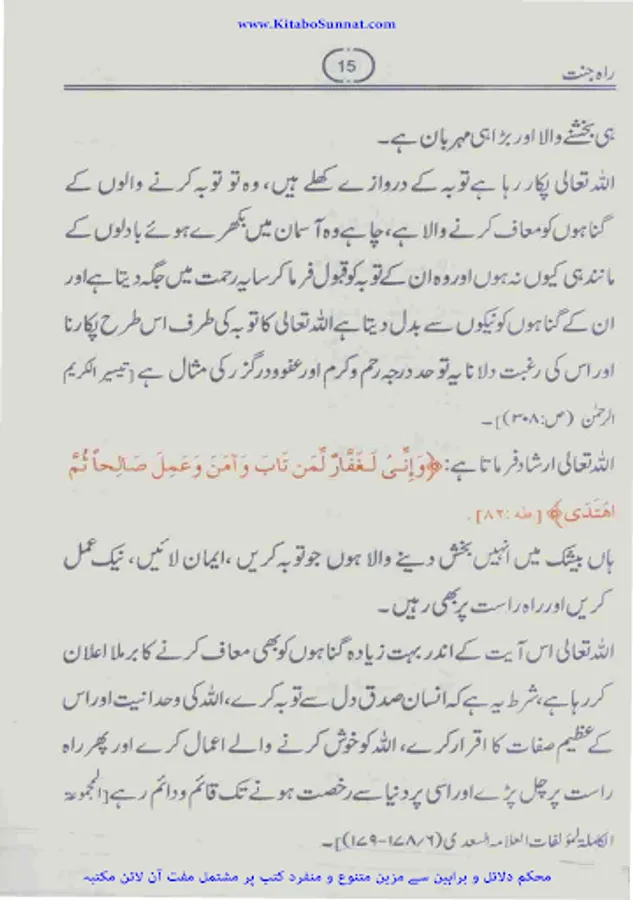 www.KitaboSunnat.com
راہ جنت
15
ہی بخشنے والا اور بڑا ہی مہربان ہے۔
اللہ تعالی پکار رہا ہے توبہ کے دروازے کھلے ہیں، وہ تو توبہ کرنے والوں کے
گناہوں کو معاف کرنے والا ہے، چاہے وہ آسمان میں بکھرے ہوئے بادلوں کے
مانند ہی کیوں نہ ہوں اور وہ ان کے توبہ کو قبول فرما کر سایہ رحمت میں جگہ دیتا ہے اور
ان کے گناہوں کو نیکوں سے بدل دیتا ہے اللہ تعالی کا توبہ کی طرف اس طرح پکارنا
اور اس کی رغبت دلانا یہ تو حد درجہ رحم وکرم اور عفوودرگزر کی مثال ہے [تیسیر الکریم
الرحمٰن (ص:۳۰۸)]۔
اللہ تعالی ارشاد فرماتا ہے: ﴿وَإِنِّىْ لَغَفَّارٌ لِّمَن تَابَ وَآمَنَ وَعَمِلَ صَالِحاً ثُمَّ
اهْتَدَى﴾ [طه:۸۲].
ہاں بیشک میں انہیں بخش دینے والا ہوں جو توبہ کریں، ایمان لائیں، نیک عمل
کریں اور راہ راست پر بھی رہیں۔
اللہ تعالی اس آیت کے اندر بہت زیادہ گناہوں کو بھی معاف کرنے کا برملا اعلان
کر رہا ہے، شرط یہ ہے کہ انسان صدق دل سے توبہ کرے، اللہ کی وحدانیت اور اس
کے عظیم صفات کا اقرار کرے، اللہ کو خوش کرنے والے اعمال کرے اور پھر راہ
راست پر چل پڑے اور اسی پر دنیا سے رخصت ہونے تک قائم و دائم رہے [المجموعۃ
الکاملۃ لمؤلفات العلامہ السعدی (۶/۱۷۸-۱۷۹)]۔
محکم دلائل و براہین سے مزین متنوع و منفرد کتب پر مشتمل مفت آن لائن مکتبہ